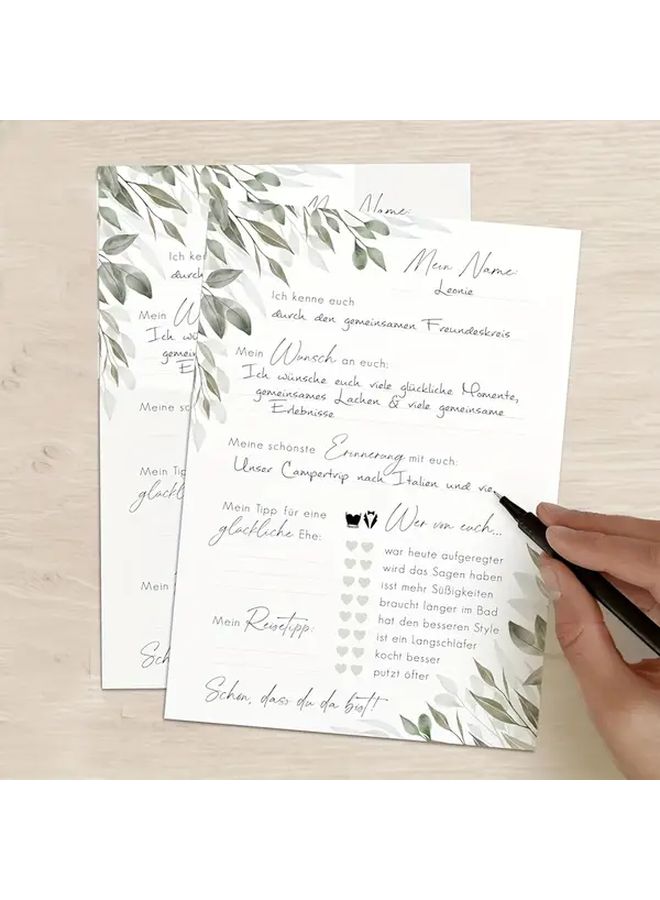 Mein Name:
Leonie
Ich kenne euch
durch den gemeinsamen Freundeskreis
Mein Wunsch an euch:
Ich wünsche euch viele glückliche Momente,
gemeinsames Lachen & viele gemeinsame
Erlebnisse
Meine schönste Erinnerung mit euch:
Unser Campertrip nach Italien und vie
Mein Tipp für eine
glückliche Ehe:
Mein Reisetipp:
Wer von euch...
war heute aufgeregter
wird das Sagen haben
isst mehr Süßigkeiten
braucht länger im Bad
hat den besseren Style
ist ein Langschläfer
kocht besser
putzt öfter
Schön, dass du da bist!
Mein Name:
Ich ke
durch
Mein W
Ich wü
gemein
E
Meine sc
Mein Tip
glückli
Mein
Schö